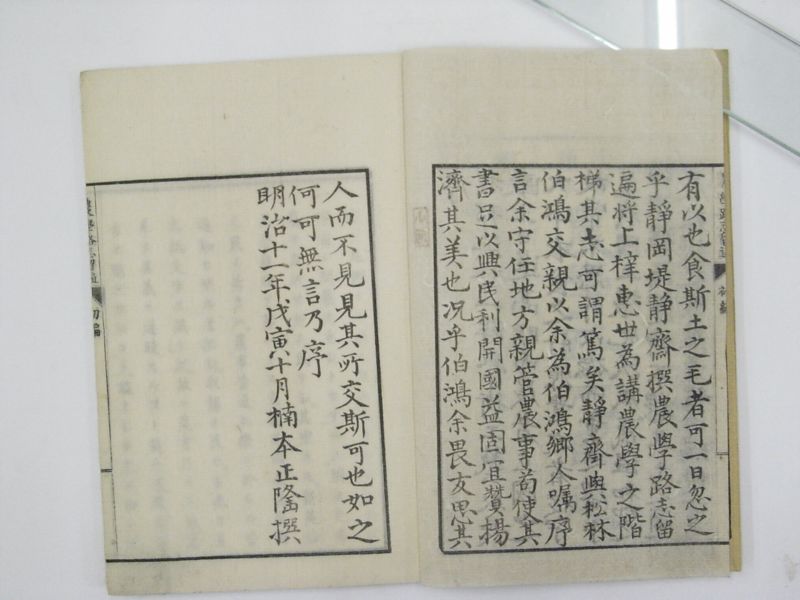 有以也食斯土之毛者可一日忽之
乎靜岡堤靜齋撰農學路志留
遍將上梓惠世為講農學之階
梯其志可謂篤矣靜齋與松林
伯鴻交親以余為伯鴻鄉人囑序
言余守任地方親管農事苟使其
書足以興民利開國益固宜贊揚
濟其美也况乎伯鴻余畏友思其
人而不見見其所交斯可也如之
何可無言乃序
明治十一年戊寅十月楠本正隆撰
初編